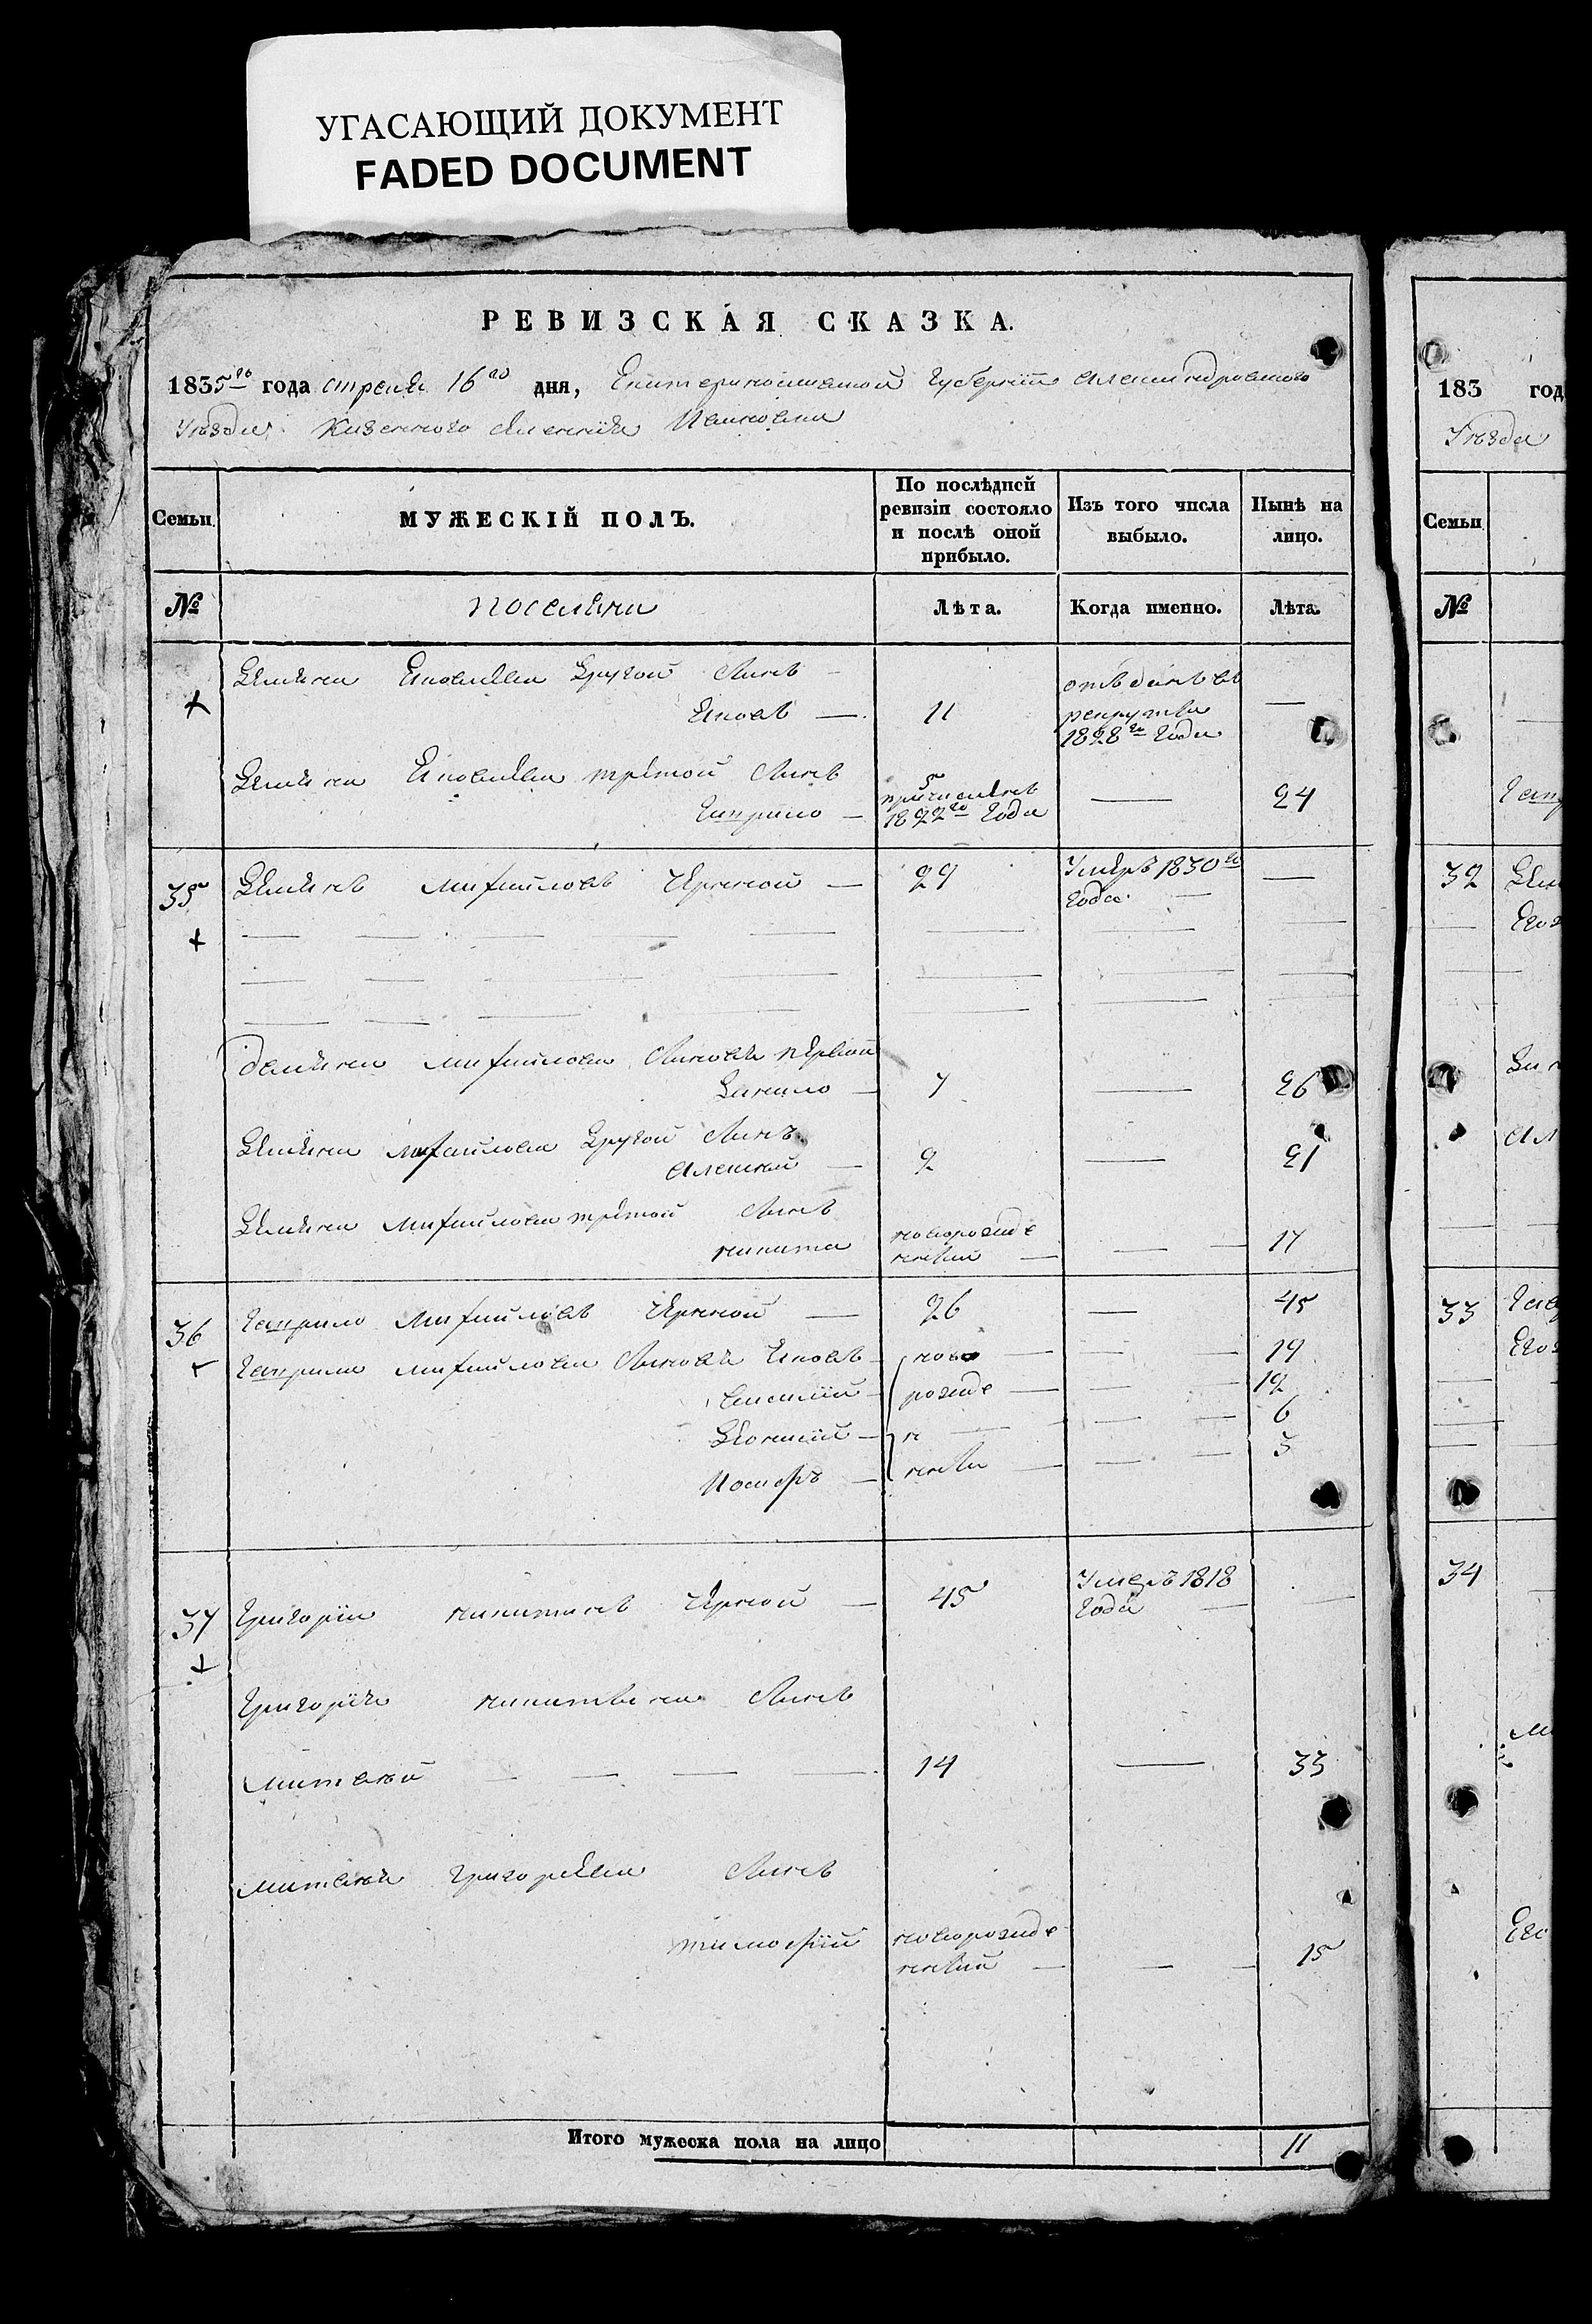 УГАСАЮЩИЙ ДОКУМЕНТ
FADED DOCUMENT
РЕВИЗСКАЯ СКАЗКА.
1835го года 16го дня, Екатеринославской Губернии Александровского
Уезда Казенного селения
Семьи
МУЖЕСКІЙ ПОЛЪ.
По послѣдней ревизіи состояло и послѣ оной прибыло.
Изъ того числа выбыло.
Нынѣ на лицо.
№
поселяни
Лѣта.
Когда именно.
Лѣта.
Яковлева Другой Сынъ
Яковъ — 11 отъданъ въ рекруты 1828го Года —
Яковлева третой Сынъ
Гаврило — 5 причисленъ 1822го Года — 24
35 Михайловъ Черной — 29 Умеръ 1830го Года —
Михайлова Сыновья первой
Данило — 7 — 26
Михайлова Другой Сынъ
Алексей — 2 — 21
Михайлова третой Сынъ
никита новорожденный — 17
36 Гаврило Михайловъ Черной — 26 — 45
Гаврила Михайлова Сыновья Яковъ ново — 19
Василий рожде — 12
н — 6
Иосифъ нные — 3
37 Григорий никитинъ Черной — 45 Умеръ 1818 Года —
Григория никитина Сынъ
Матвей — 14 — 33
Матвея Григорьева Сынъ
тимофий новорожденный — 15
Итого мужеска пола на лицо 11
183 год
Уезда
Семьи
№
32
33
34